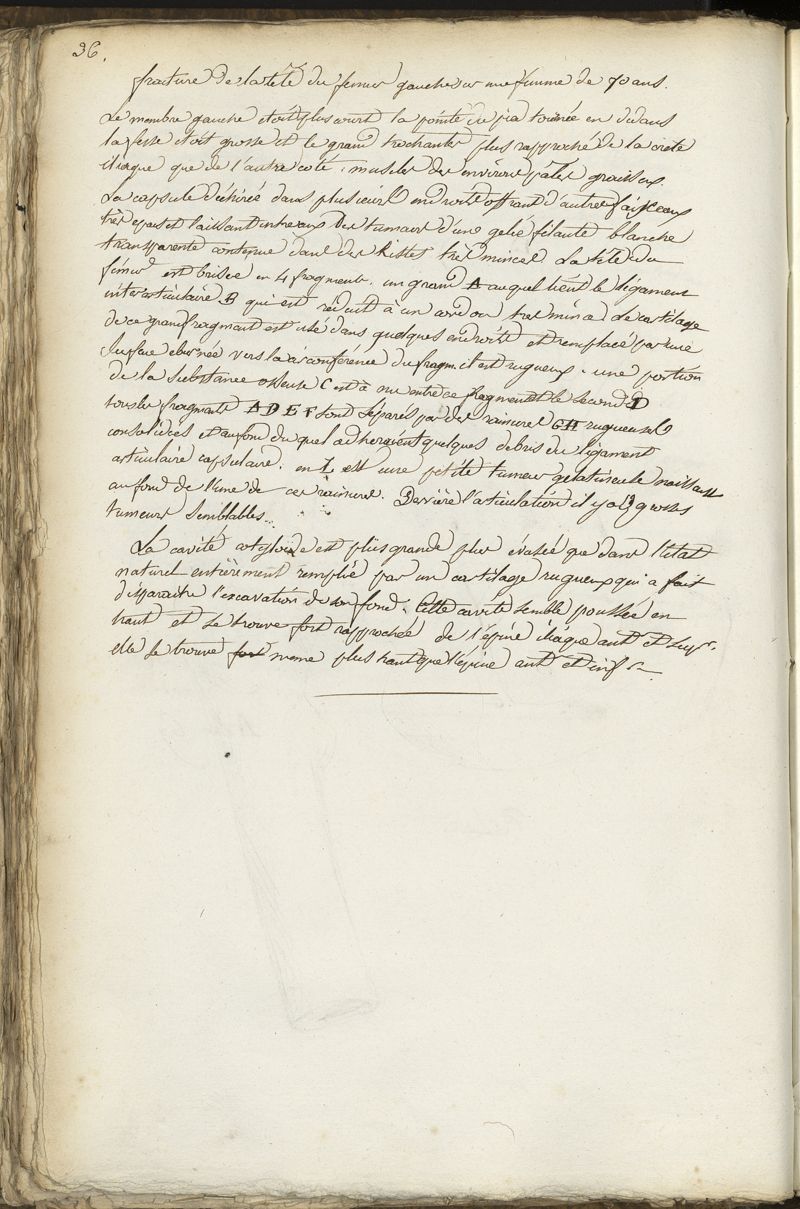 36.
fracture de la tête du femur gauche sur une femme de 70 ans.
Le membre gauche etoit plus court la pointe du pié tournée en dedans
la fesse etoit grosse et le grand trochanter plus rapproché de la crete
iliaque que de l'autre coté, muscles des environs pâles graisseux.
La capsule déchirée dans plusieurs endroits offrant d'autres faisceaux
très epais et laissant entre eux des tumeurs d'une gelée filante blanche
transparente contenue dans des kistes très minces La tête du
fémur est brisée en 4 fragments. un grand A auquel tient le ligament
interarticulaire B qui est réduit à un cordon tres mince Le cartilage
de ce grand fragment est usé dans quelques endroits et remplacé par une
surface eburnée vers la circonférence du fragm. il est rugueux. une portion
de la substance osseuse C est à nu entre ce fragment et le second D
tous les fragments A D E F sont séparés par des rainures G H rugueuses
consolidées et au fond du quel adheroient quelques debris du ligament
articulaire capsulaire. en I. est une petite tumeur gelatineuse naissant
au fond de l'une de ces rainures. Derrière l'articulation il y a 3 grosses
tumeurs semblables.
La cavité cotyloide est plus grande plus évasée que dans l'état
naturel entièrement remplie par un cartilage rugueux qui a fait
disparaitre l'excavation de son fond. Cette cavité semble poussée en
haut et se trouve fort rapprochée de l'épine iliaque ant et supr.
elle se trouve meme plus haut que l'épine ant et infr